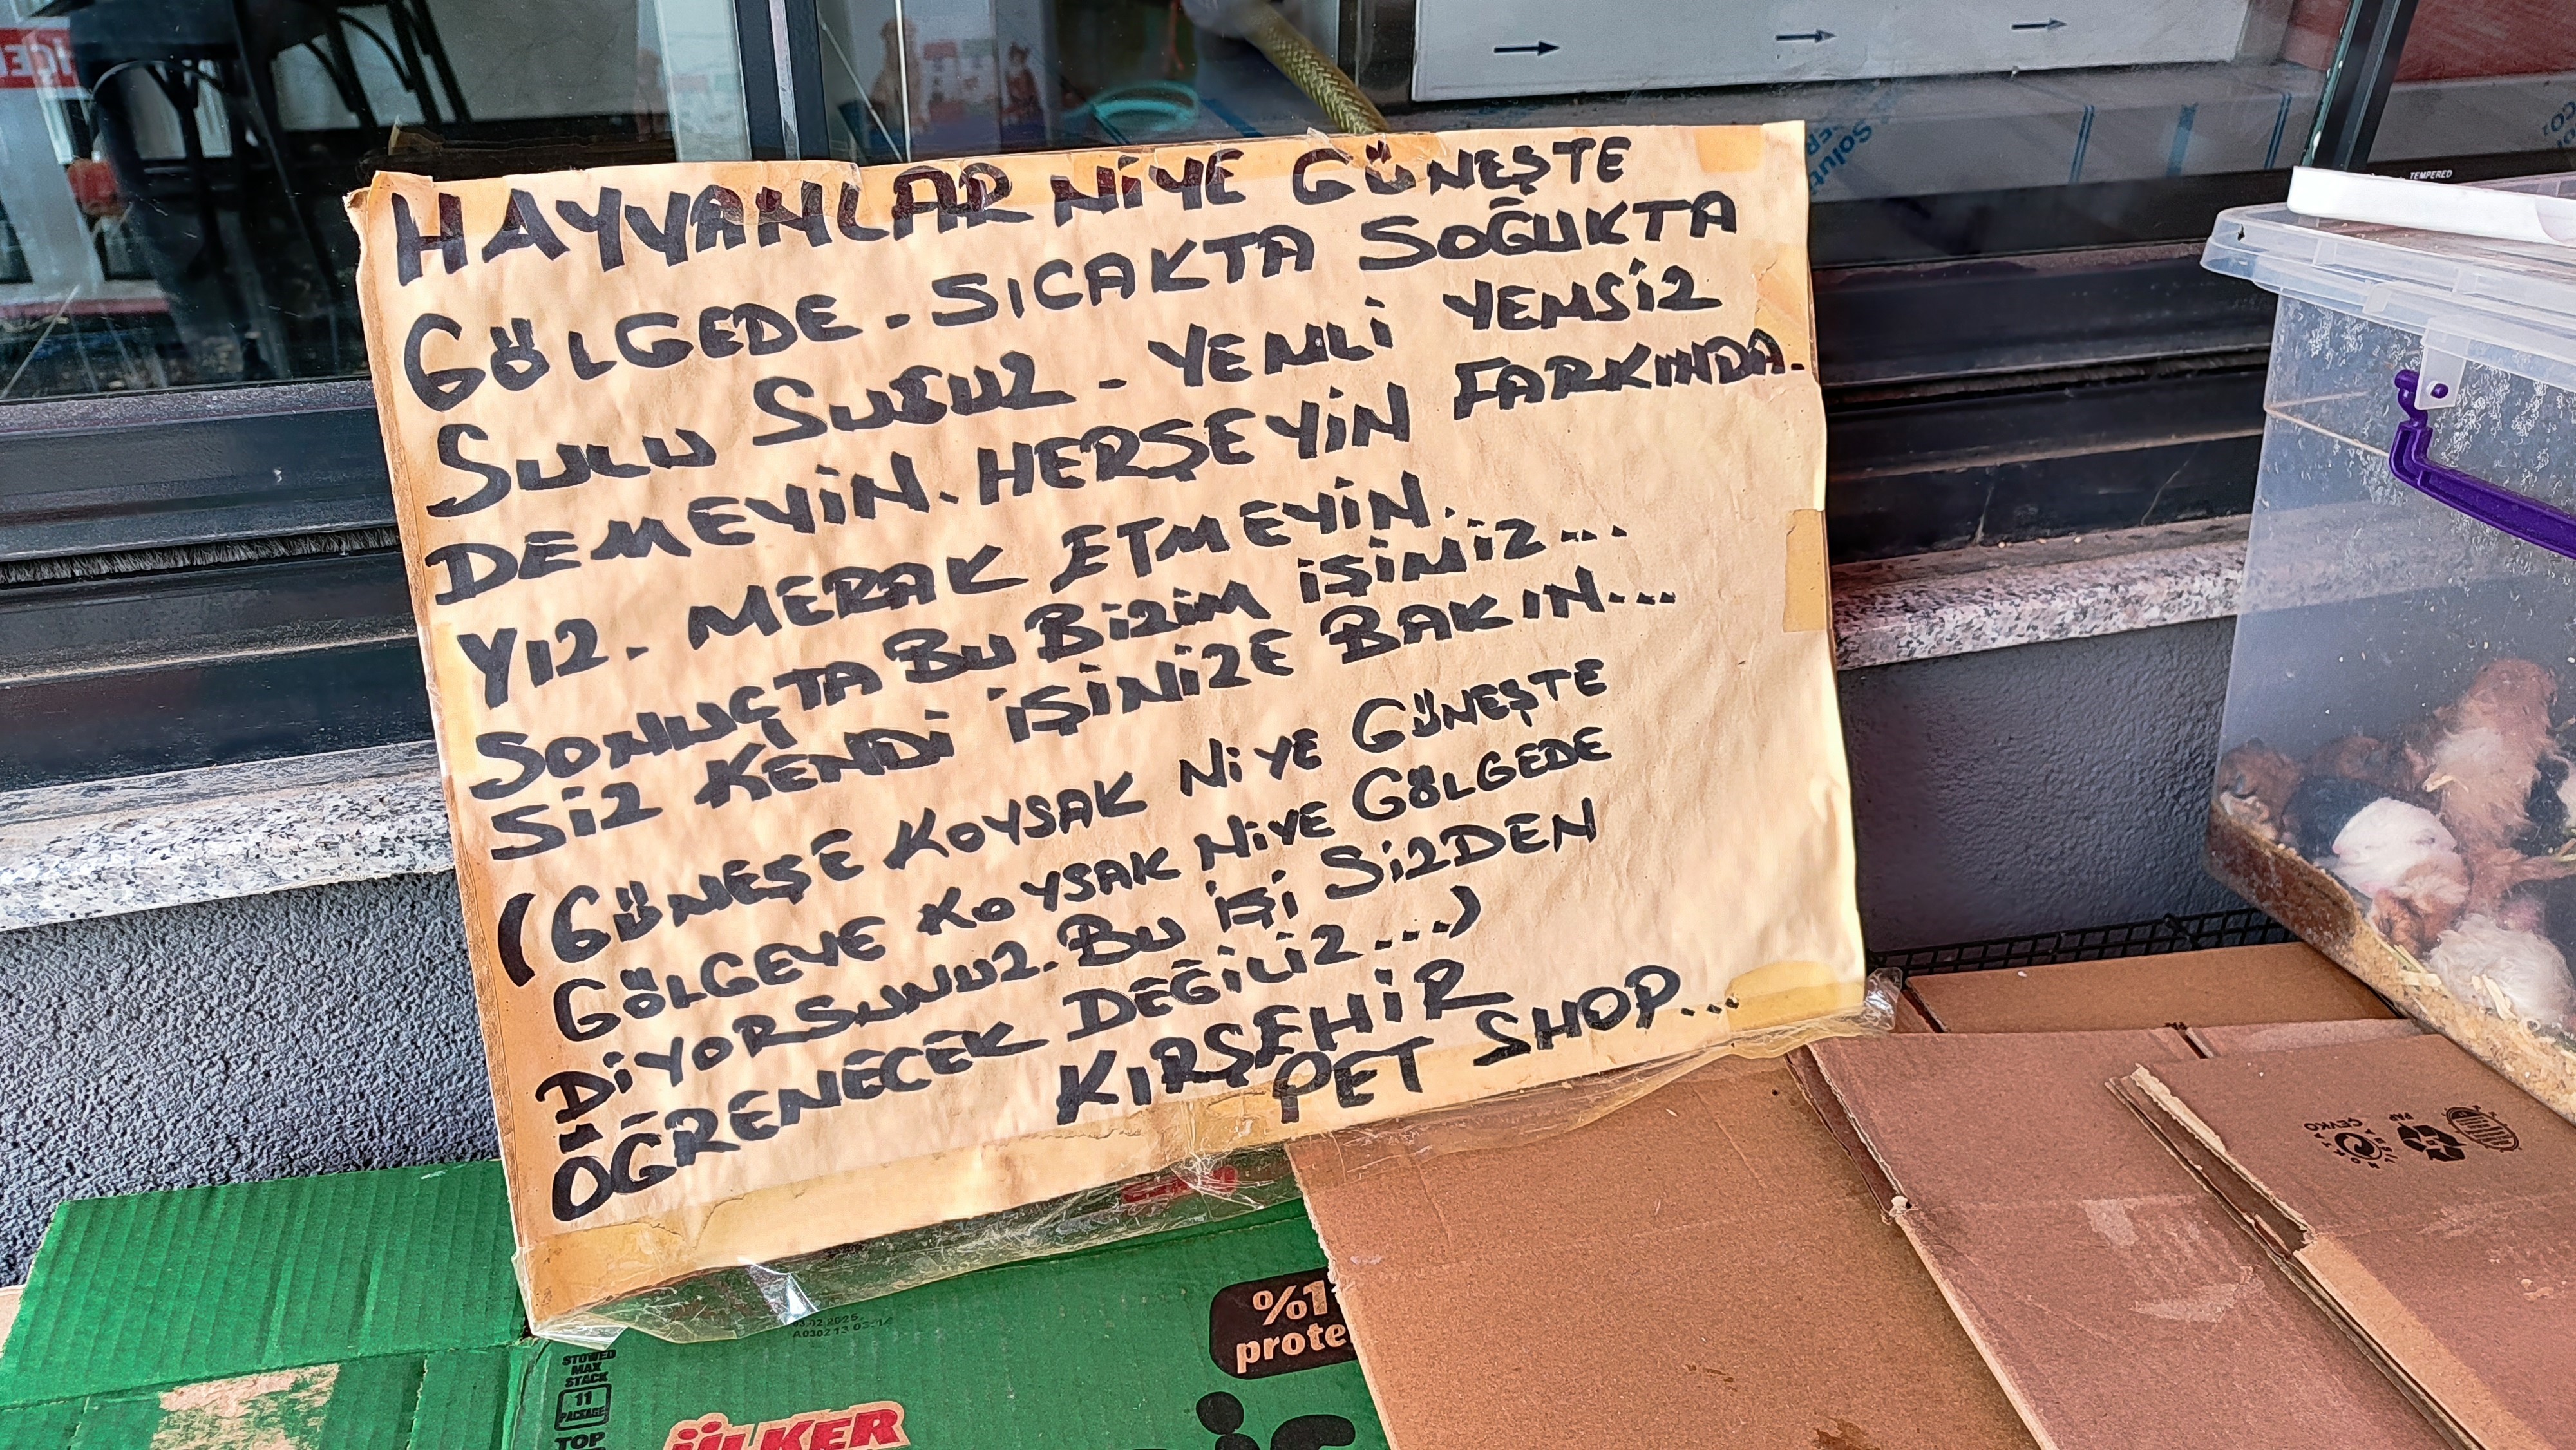 HAYVANLAR NİYE GÜNEŞTE
GÖLGEDE - SICAKTA SOĞUKTA
SULU SUSUZ - YEMLİ YEMSİZ
DEMEYİN. HERŞEYİN FARKINDA-
YIZ. MERAK ETMEYİN.
SONUÇTA BU BİZİM İŞİMİZ...
SİZ KENDİ İŞİNİZE BAKIN...
(GÜNEŞE KOYSAK NİYE GÜNEŞTE
GÖLGEYE KOYSAK NİYE GÖLGEDE
DİYORSUNUZ. BU İŞİ SİZDEN
ÖĞRENECEK DEĞİLİZ...)
KIRŞEHİR
PET SHOP...
TEMPERED
%1
prote
STOWED
MAX
STACK
11
PACKAGE
TOP
ÜLKER
ÇEVKO
PAP